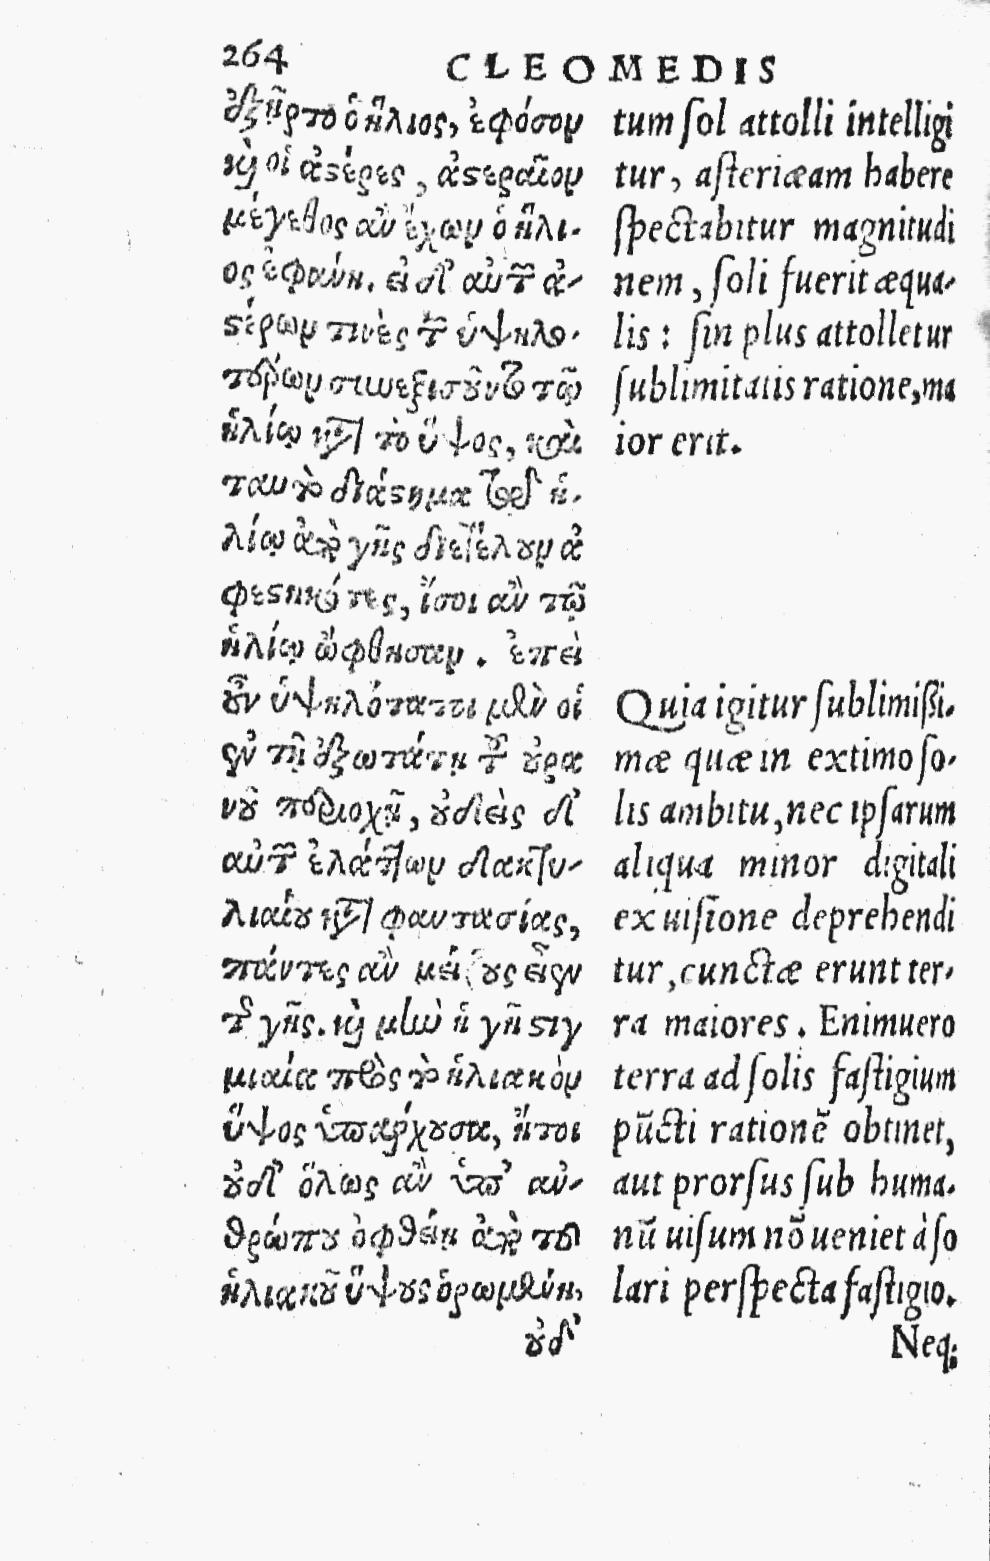 264
CLEOMEDIS
ἐξῆρτο ὁ ἥλιος, ἐφόσον
καὶ οἱ ἀστέρες, ἀστεραῖον
μέγεθος ἂν ἔχων ὁ ἥλι-
ος ἐφαίνη. εἰ δ' αὐτῶν ἀ-
στέρων τινὲς τῶν ὑψηλο-
τέρων συνεξισοῦνται τῷ
ἡλίῳ κατὰ τὸ ὕψος, καὶ
ταυτὸ διάστημα τῷδ' ἡ-
λίῳ ἀπὸ γῆς διετέλουν ἀ
φεστηκότες, ἴσοι ἂν τῷ
ἡλίῳ ὤφθησαν. ἐπεὶ
οὖν ὑψηλότατοι μὲν οἱ
σὺν τῇ ἐξωτάτῃ τοῦ οὐρα
νοῦ περιοχῇ, οὐδεὶς δ'
αὐτῶν ἐλάττων δακτυ-
λιαίου κατὰ φαντασίας,
πάντες ἂν μείζους εἶεν
τῆς γῆς. καὶ μὴν ἡ γῆ στιγ
μιαία πρὸς τὸ ἡλιακὸν
ὕψος ὑπάρχουσα, ἤτοι
οὐδ' ὅλως ἂν ὑπ' ἀν-
θρώπου ὀφθείη ἀπὸ τοῦ
ἡλιακοῦ ὕψους ὁρωμένη,
οὐδ'
tum sol attolli intelligi
tur, astericæam habere
spectabitur magnitudi
nem, soli fuerit æqua-
lis: sin plus attolletur
sublimitatis ratione, ma
ior erit.
Quia igitur sublimissi-
mæ quæ in extimo so-
lis ambitu, nec ipsarum
aliqua minor digitali
ex uisione deprehendi
tur, cunctæ erunt ter-
ra maiores. Enimuero
terra ad solis fastigium
pũcti rationẽ obtinet,
aut prorsus sub huma-
nũ uisum nõ ueniet à so
lari perspecta fastigio.
Neq;